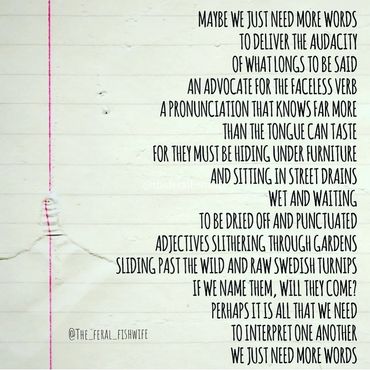 MAYBE WE JUST NEED MORE WORDS
TO DELIVER THE AUDACITY
OF WHAT LONGS TO BE SAID
AN ADVOCATE FOR THE FACELESS VERB
A PRONUNCIATION THAT KNOWS FAR MORE
THAN THE TONGUE CAN TASTE
FOR THEY MUST BE HIDING UNDER FURNITURE
AND SITTING IN STREET DRAINS
WET AND WAITING
TO BE DRIED OFF AND PUNCTUATED
ADJECTIVES SLITHERING THROUGH GARDENS
SLIDING PAST THE WILD AND RAW SWEDISH TURNIPS
IF WE NAME THEM, WILL THEY COME?
PERHAPS IT IS ALL THAT WE NEED
TO INTERPRET ONE ANOTHER
WE JUST NEED MORE WORDS
@THE_FERAL_FISHWIFE